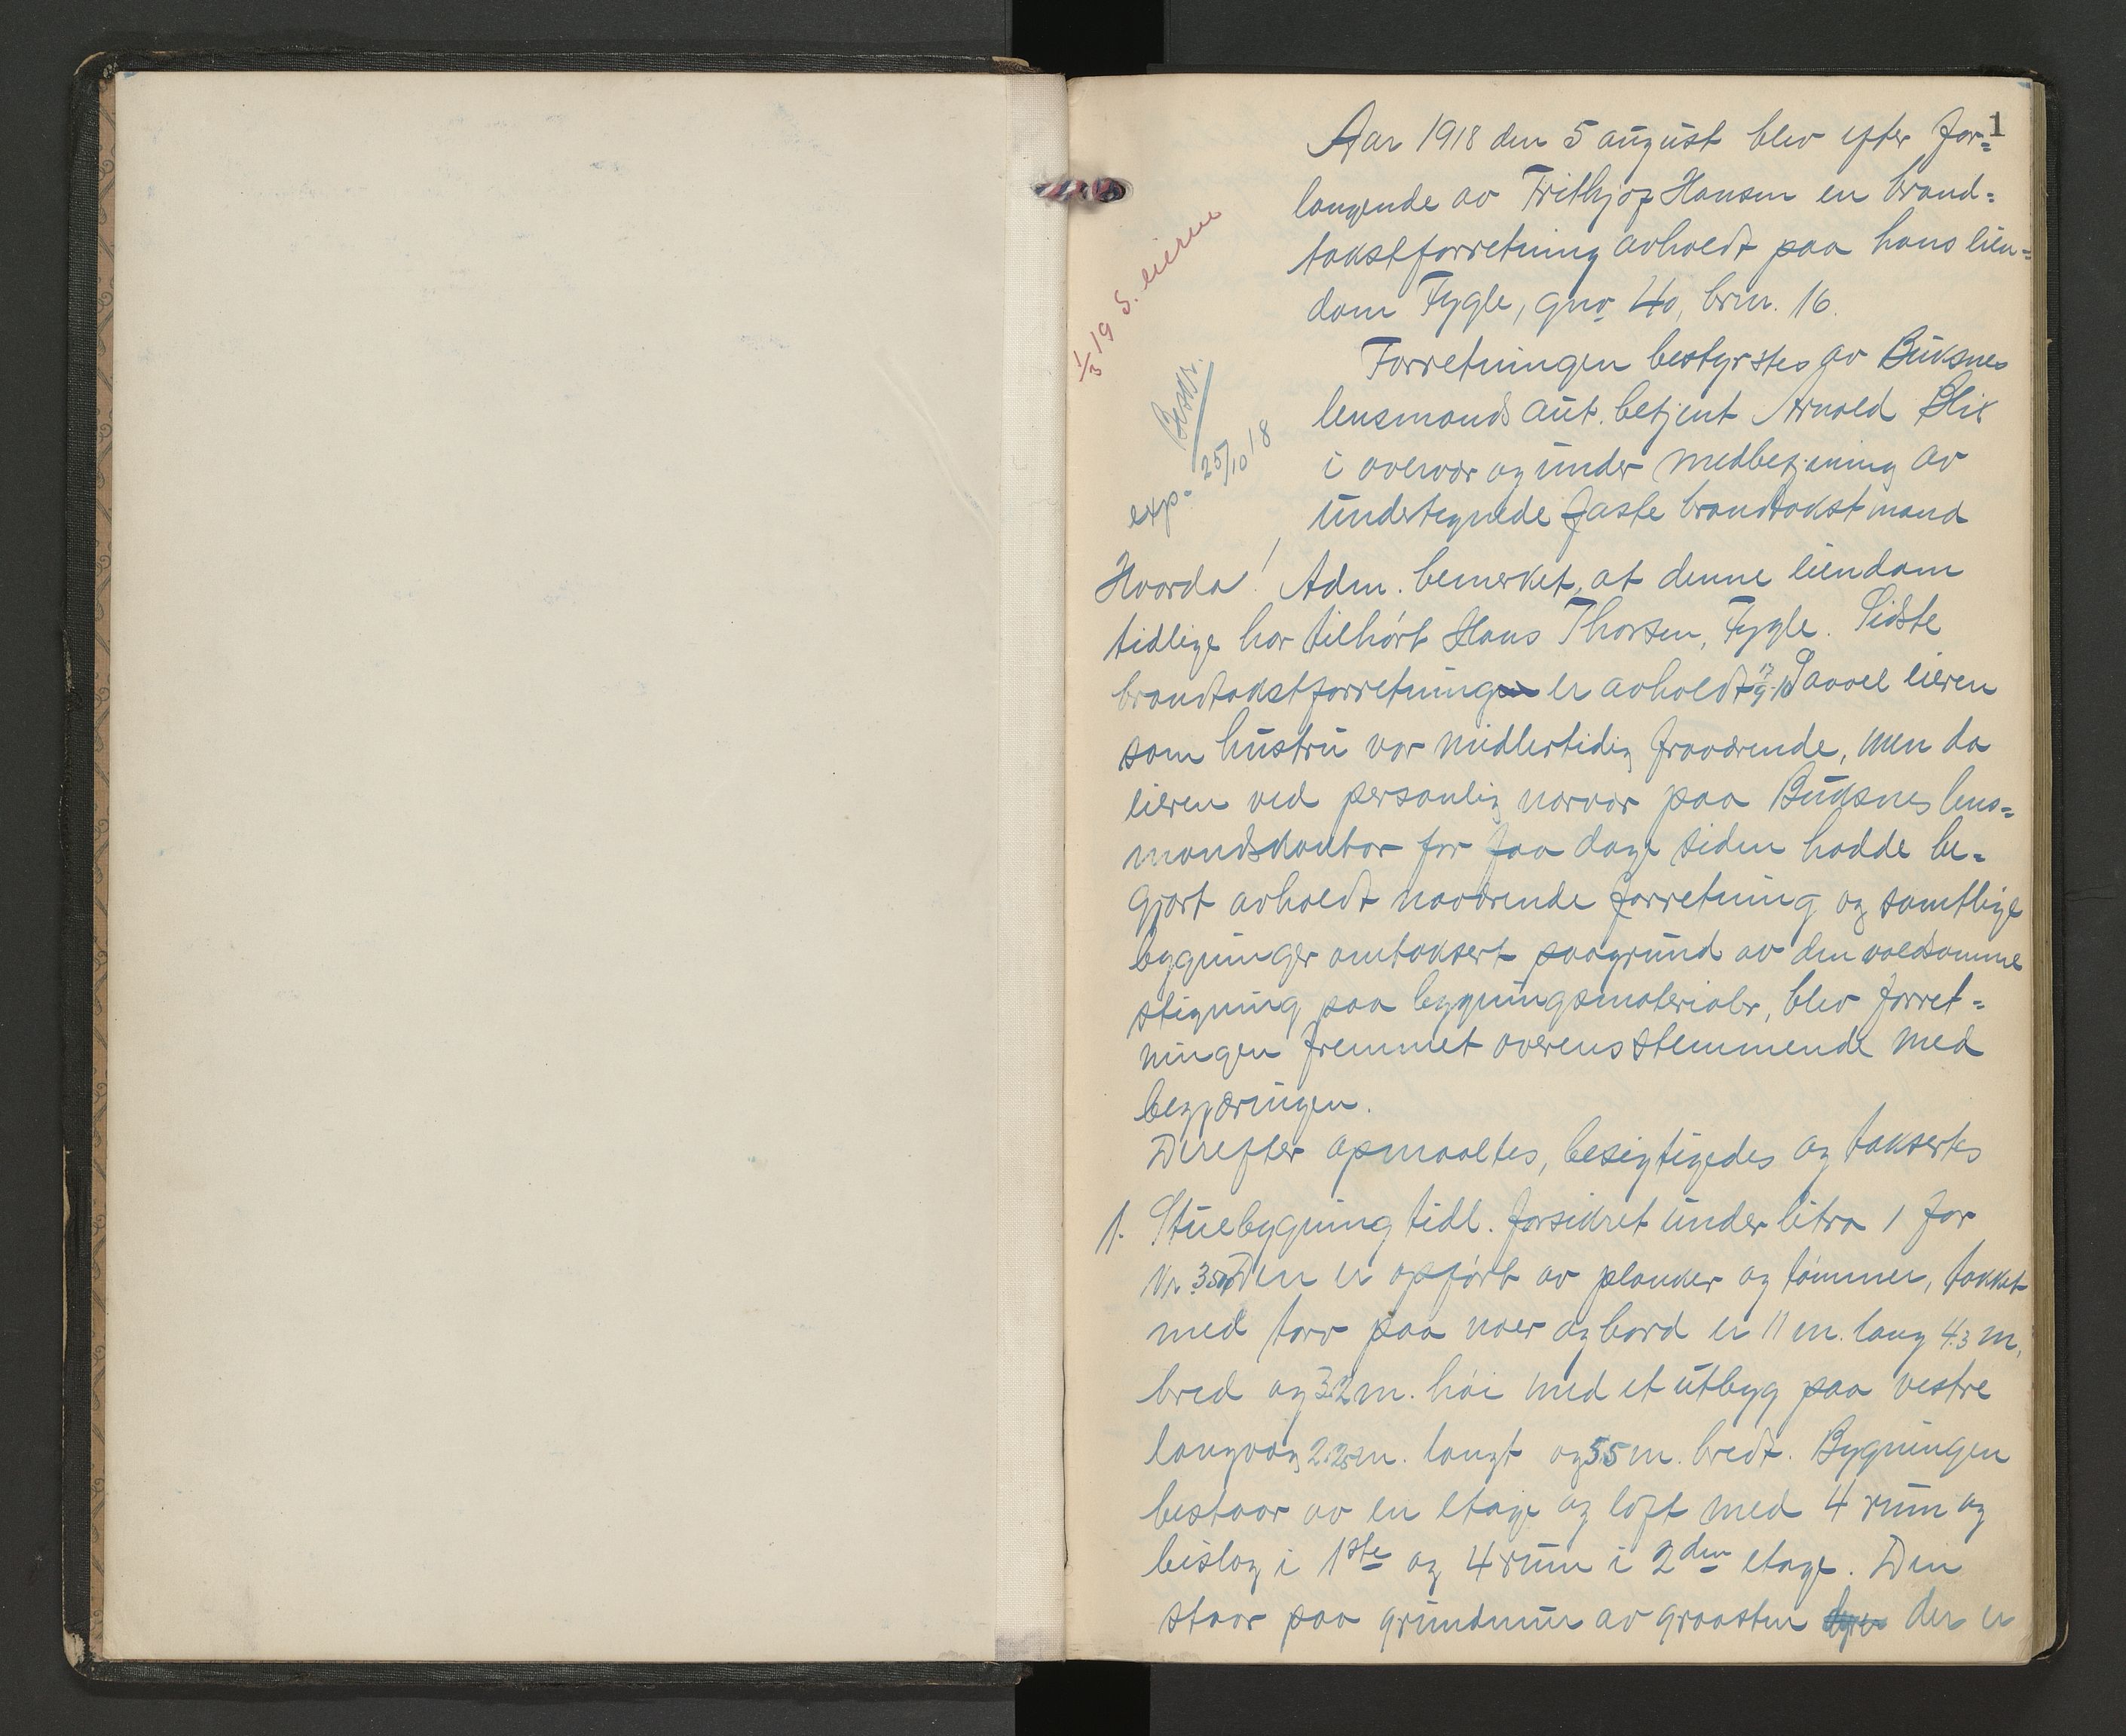 1
Aar 1918 den 5 august blev efter for=
langende av Frithjof Hansen en brand=
takstforretning avholdt paa hans eien=
dom Fygle, gno. 40, brn. 16.
Forretningen bestyrtes av Buksnes
lensmands aut. betjent Arnold Blix
i overvær og under medbetjening av
undertegnede faste brandtakstmand
Hvorda! Adm. bemerket, at denne eiendom
tidlige har tilhört Hans Thorsen, Fygle. Sidste
brandtakstforretning er avholdt Saavel eieren
som hustru var midlertidig fraværende, men da
eieren ved personlig nærvær paa Buksnes lens=
mandskontor for faa dage siden hadde be=
gjært avholdt nærværende forretning og samtlige
bygninger omtaksert paagrund av den voldsomme
stigning paa bygningsmaterialer, blev forret=
ningen fremmet overensstemmende med
begjæringen.
Derefter opmaaltes, besigtigedes og taksertes
1. Stuebygning tidl. forsikret under litra 1 for
kr. 3500 Den er opført av planker og tömmer, takket
med torv paa næver og bord er 11 m. lang 4.3 m.
bred og 3.2 m. höi med et utbyg paa vestre
langvæg 2.25 m. langt og 5.5 m. bredt. Bygningen
bestaar av en etage og loft med 4 rum og
bislag i 1ste og 4 rum i 2den etage. Den
staar paa grundmur av graasten der er
1/3 19 S. eieren
Beskr.
exp. 25/10 18